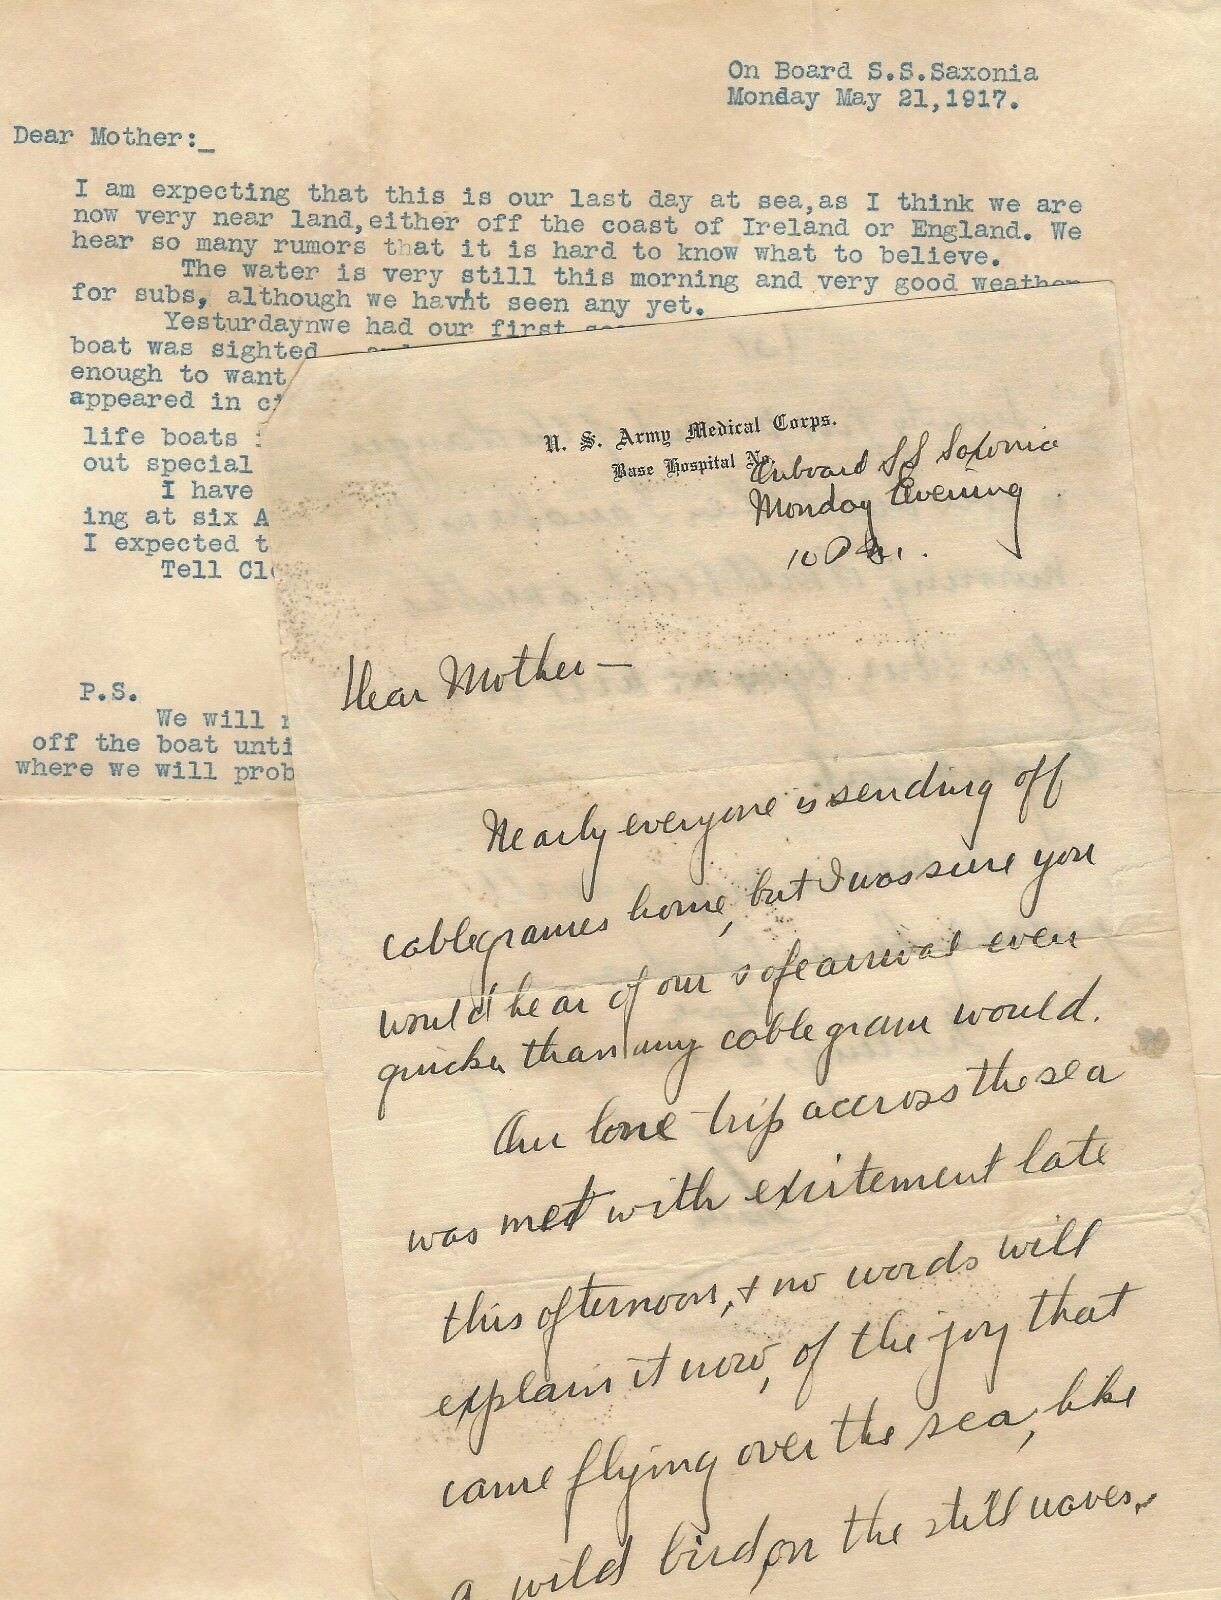 On Board S.S.Saxonia
Monday May 21,1917.
Dear Mother:_
I am expecting that this is our last day at sea,as I think we are
now very near land,either off the coast of Ireland or England. We
hear so many rumors that it is hard to know what to believe.
The water is very still this morning and very good weather
for subs, although we havn't seen any yet.
Yesturdaynwe had our first
boat was sighted
enough to want
appeared in
life boats
out special
I have
ing at six A
I expected
Tell
P.S.
We will
off the boat
where we will
U. S. Army Medical Corps.
Base Hospital No.
Onboard SS Saxonia
Monday Evening
10 P.M.
Dear Mother —
Nearly everyone is sending off
cablegrames home, but I was sure you
would hear of our safe arrival even
quicker than any cablegram would.
Our lone trip accross the sea
was met with exitement late
this afternoon, + no words will
explain it now, of the joy that
came flying over the sea, like
a wild bird, on the still waves.